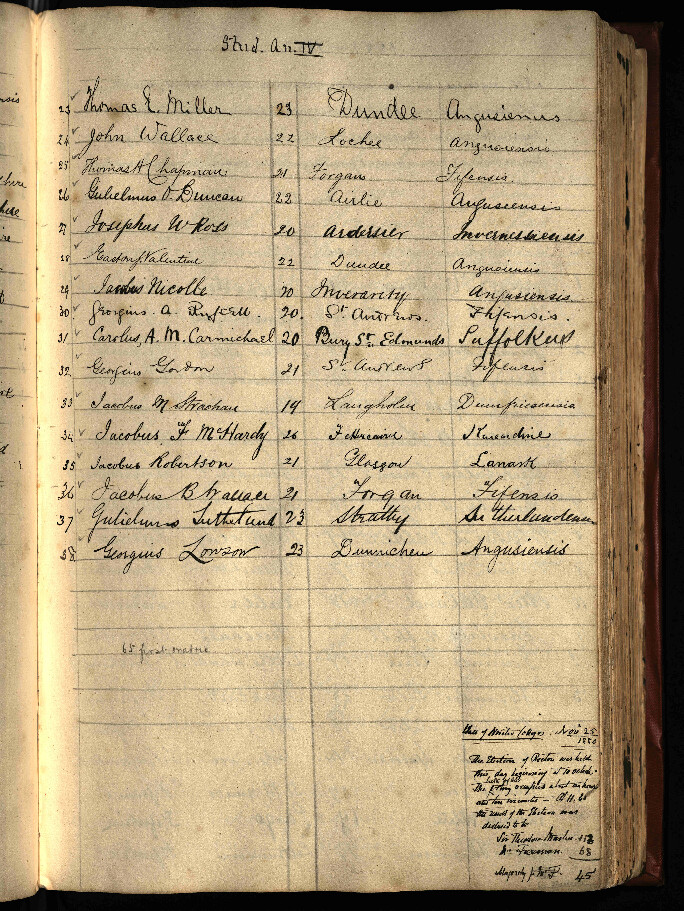 Stud. An. IV
23 Thomas E. Miller 23 Dundee Angusiensis
24 John Wallace 22 Lochee Angusiensis
25 Thomas A Chapman 21 Forgan Fifensis.
26 Gulielmus O. Duncan 22 Airlie Angusiensis
27 Josephus W Ross 20 Ardersier Invernessiensis
28 Valentine 22 Dundee Angusiensis
29 Nicolle 20 Inverarity Angusiensis
30 Georgius. A. 20. St. Andrews. Fifensis.
31 Carolus, A. M. Carmichael 20 Bury St. Edmunds Suffolkus
32 Georgius Gordon 21 St. Andrews Fifensis
33 Jacobus M Strachan 19 Langholm Dumfriesensis
34 Jacobus F McHardy 26 Kincardine
35 Jacobus Robertson 21 Glasgow Lanark
36 Jacobus B Wallace 21 Forgan Fifensis
37 Gulielmus Sutherland 23 Strathy
38 Georgius Lowson 23 Dunnichen Angusiensis
65 first matric
Nov 25
1880
The Election of Rector was held
this day beginning at 10 oclock.
The occupied about an hour
and ten minutes — At 11.
the result of the Election was
declared to be
Sir Theodore Martin
68
Majority for 45